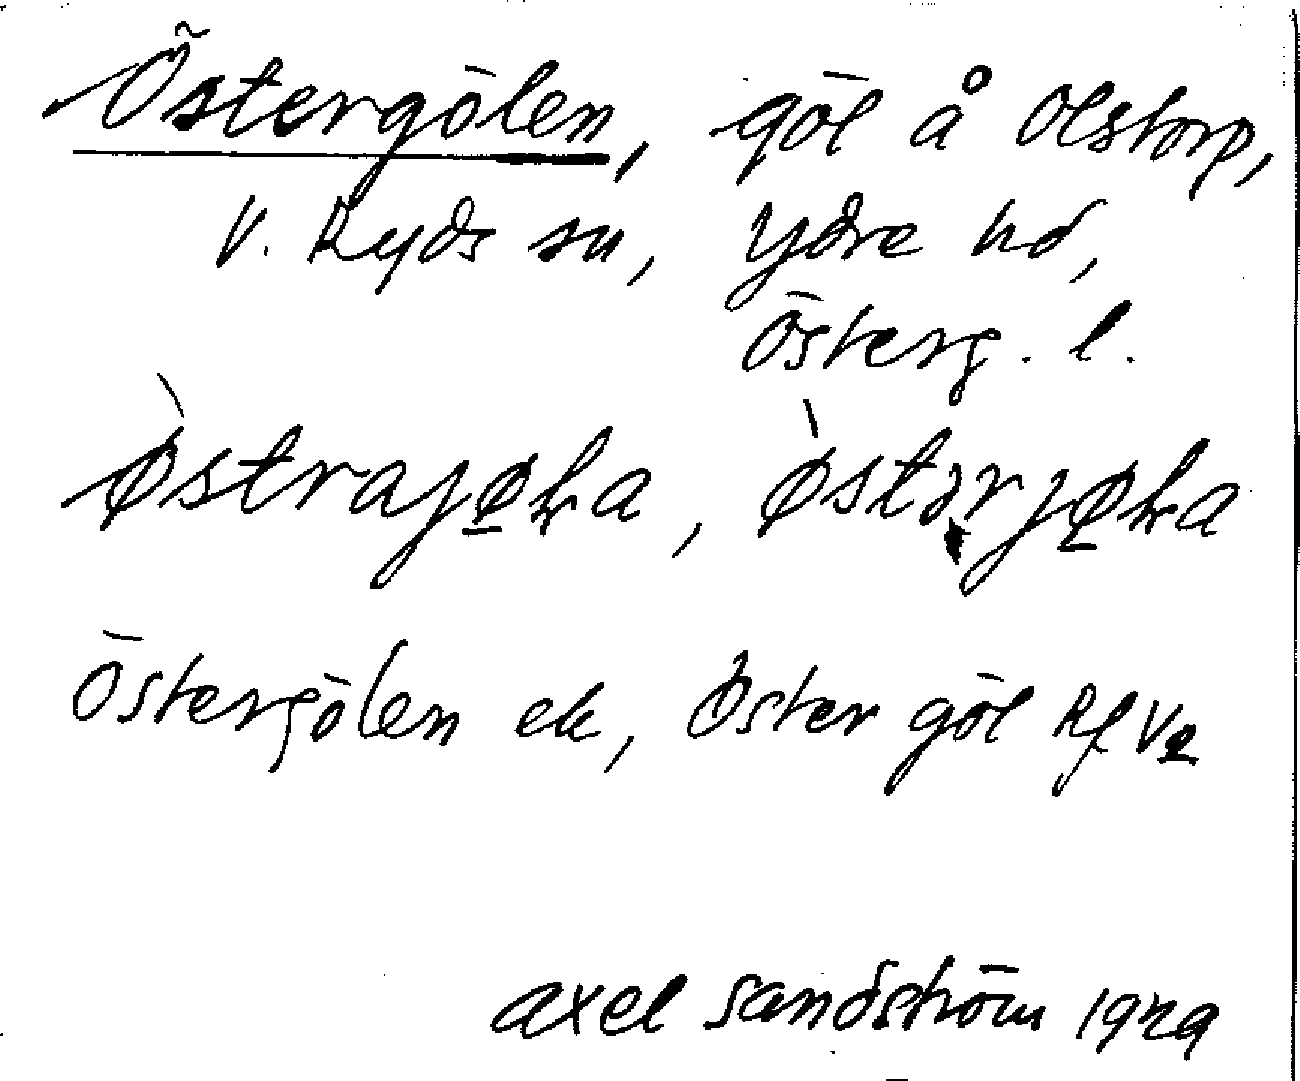 Östergölen, göl å Olstorp,
V. Ryds sn, Ydre hd,
Österg. l.
östrajøka, östərjøka
Östergölen ek, Öster göl Rf V2
Axel Sandström 1929